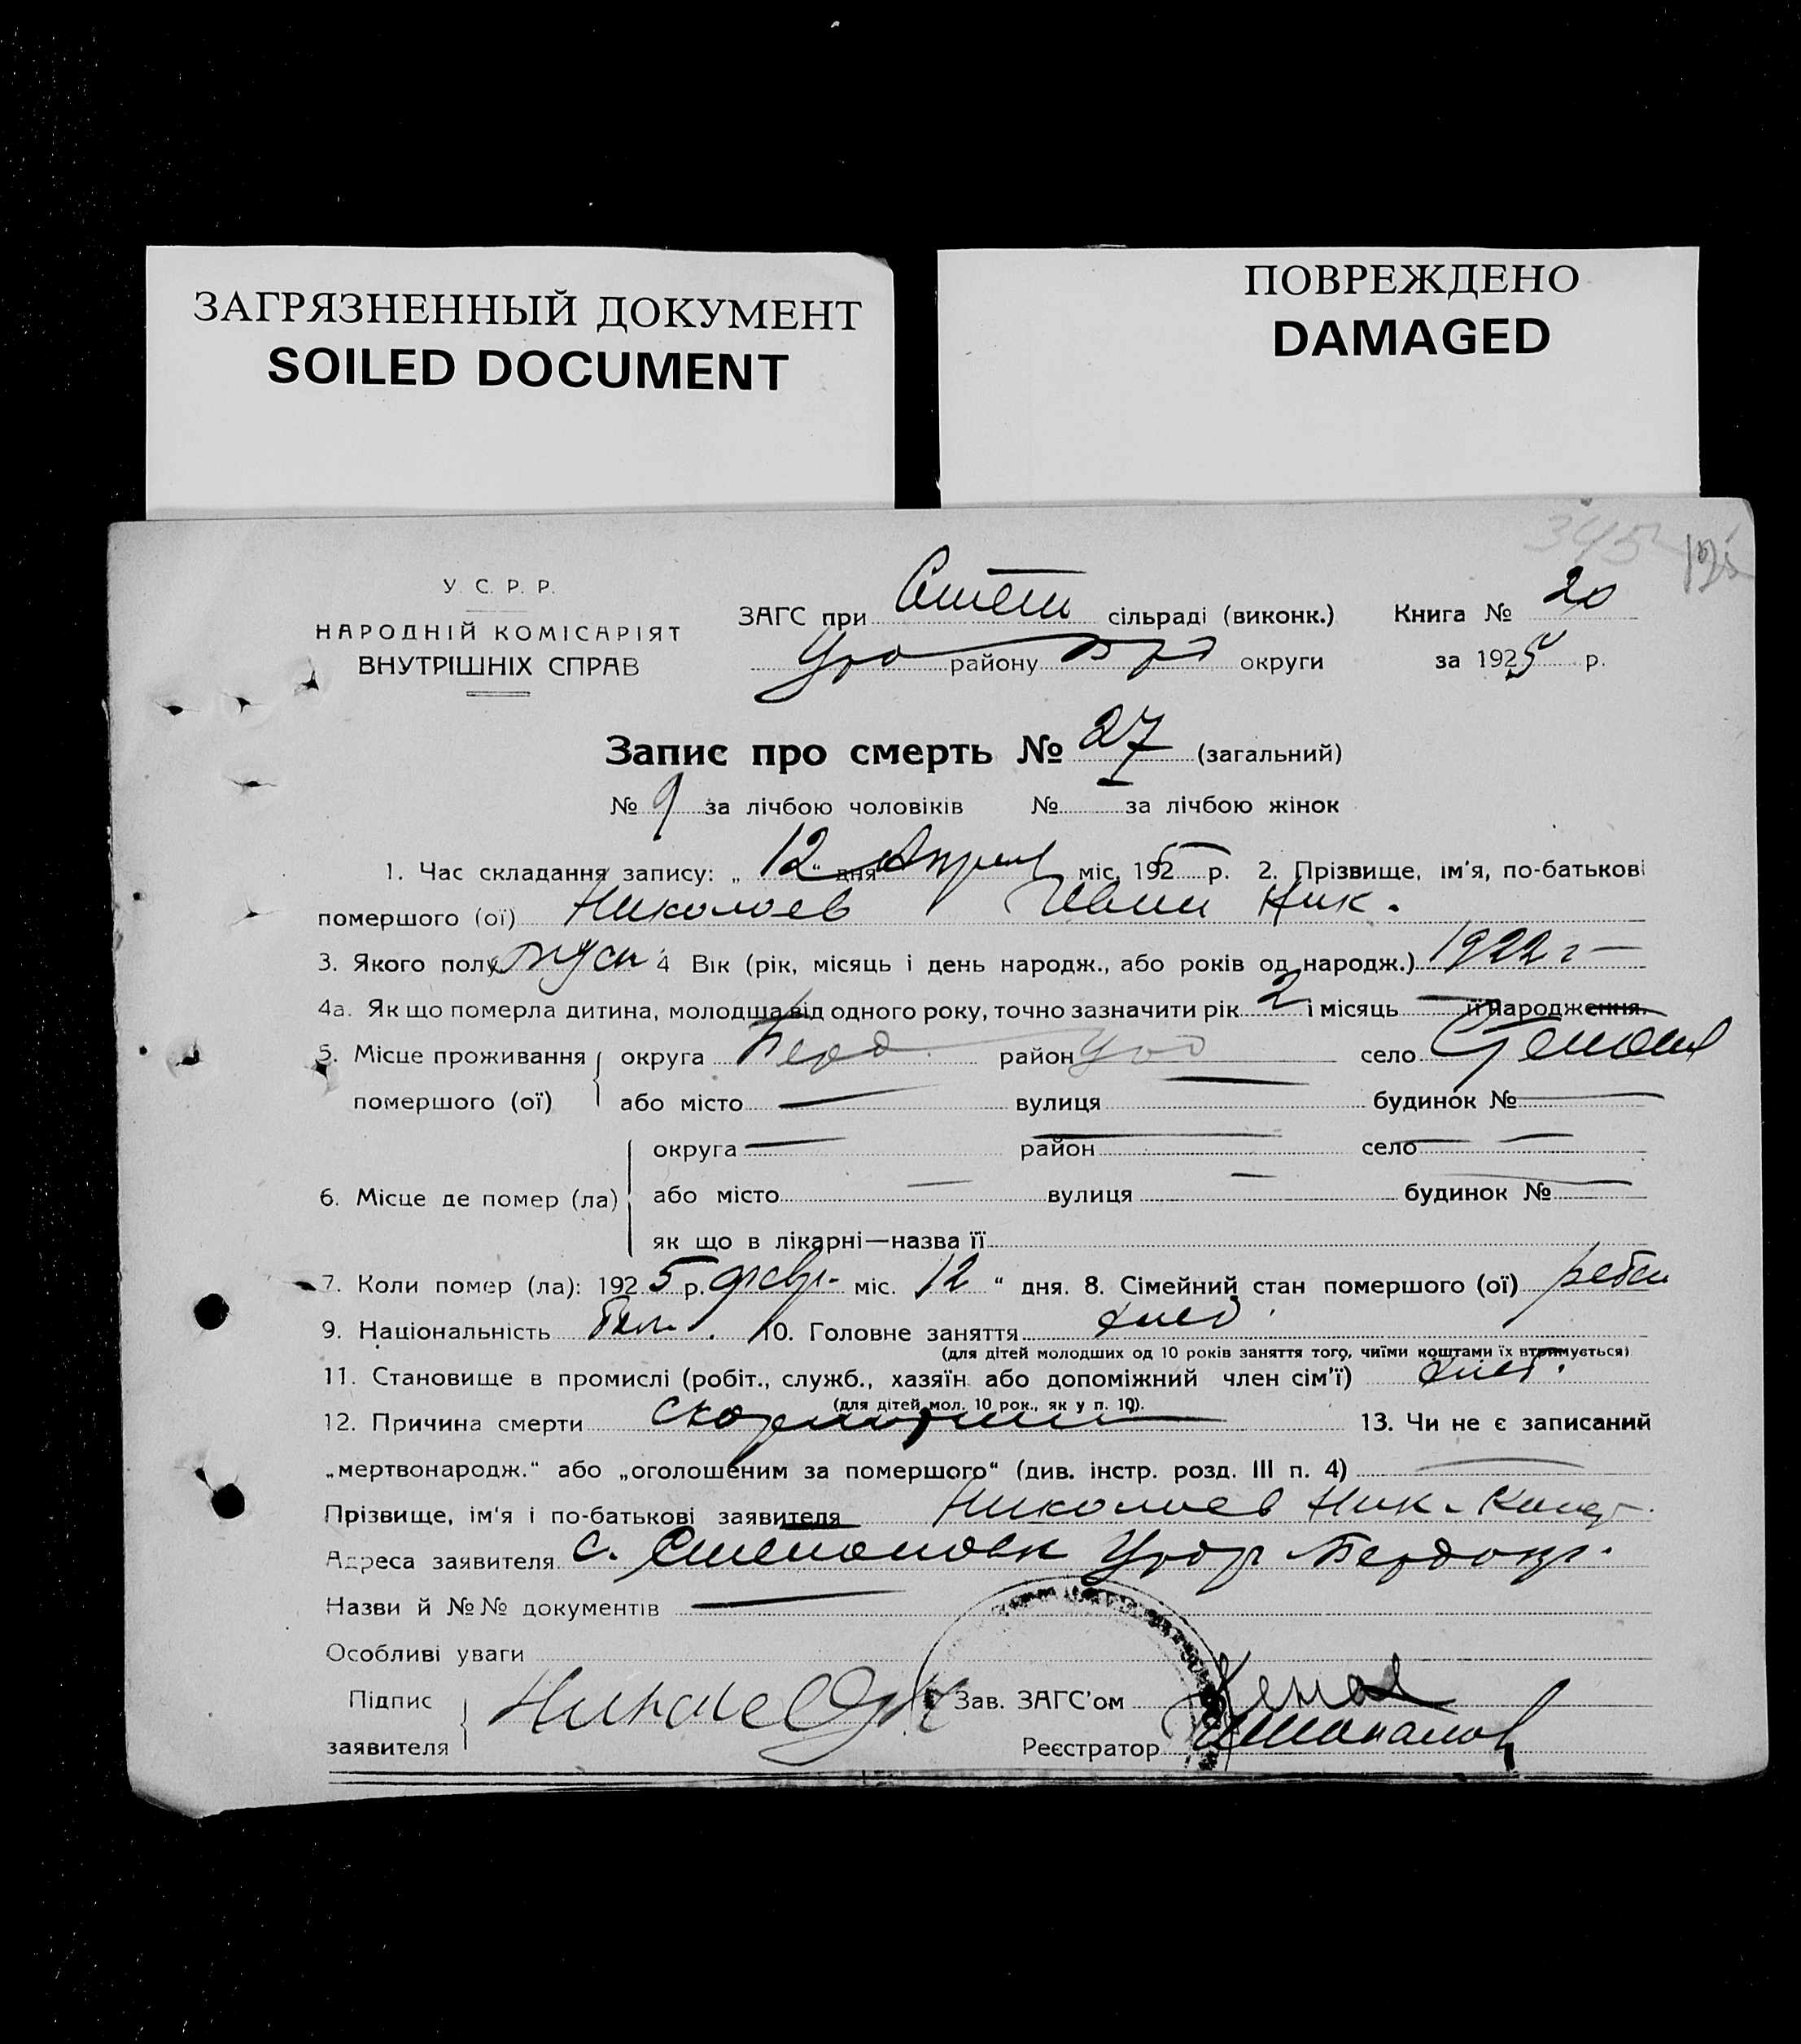 ЗАГРЯЗНЕННЫЙ ДОКУМЕНТ
SOILED DOCUMENT
ПОВРЕЖДЕНО
DAMAGED
345
У. С. Р. Р.
НАРОДНІЙ КОМІСАРІЯТ
ВНУТРІШНІХ СПРАВ
ЗАГС при Степ сільраді (виконк.) Книга № 20
району округи за 1925 р.
Запис про смерть № 27 (загальний)
№ 9 за лічбою чоловіків № за лічбою жінок
1. Час складання запису: „ 12 “ дня Апреля міс. 1925 р. 2. Прізвище, ім'я, по-батькові
помершого (ої) Николаев Иван Ник.
3. Якого полу муск 4 Вік (рік, місяць і день народж., або років од народж.) 1922 г
4а. Як що померла дитина, молодша від одного року, точно зазначити рік 2 і місяць її народження.
5. Місце проживання округа Берд. район село
помершого (ої) або місто — вулиця будинок № —
округа — район — село —
6. Місце де помер (ла) або місто — вулиця — будинок № —
як що в лікарні—назва її
7. Коли помер (ла): 1925 р. февр. міс. 12 “ дня. 8. Сімейний стан помершого (ої)
9. Національність 10. Головне заняття хлеб
(для дітей молодших од 10 років заняття того, чиїми коштами їх втримується)
11. Становище в промислі (робіт., служб., хазяїн або допоміжний член сім'ї) хлеб.
(для дітей мол. 10 рок., як у п. 10).
12. Причина смерти скарлатина 13. Чи не є записаний
„мертвонародж.“ або „оголошеним за помершого“ (див. інстр. розд. III п. 4) —
Прізвище, ім'я і по-батькові заявителя Николаев Ник.
Адреса заявителя с. Степановк
Назви й №№ документів —
Особливі уваги
Підпис
заявителя
Зав. ЗАГС'ом
Реєстратор